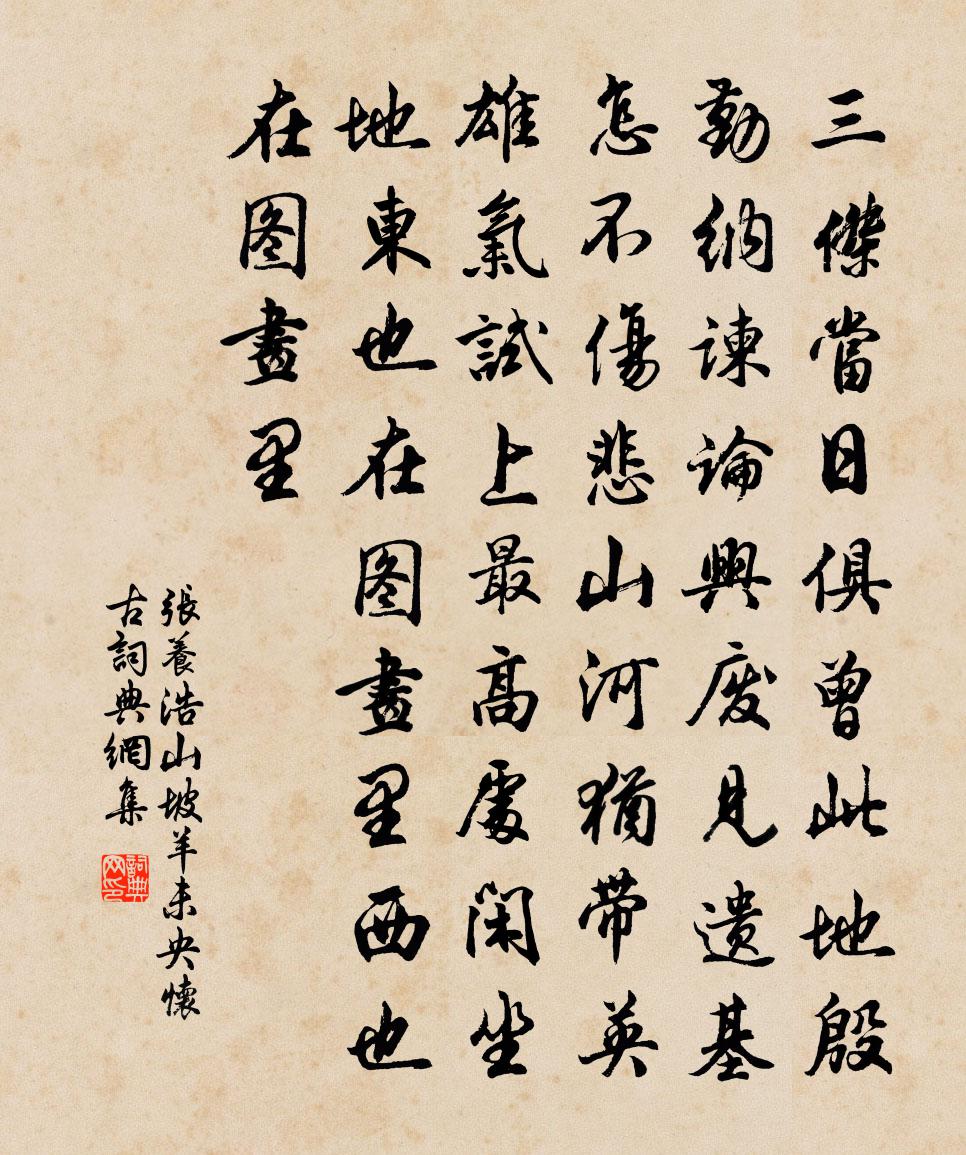 三傑當日俱曾此地殷
勤納諫論興廢見遺基
怎不傷悲山河猶带英
雄氣試上最高處閑坐
地東也在图畫里西也
在图畫里
張養浩山坡羊未央懷
古詞典網集
詞典网印